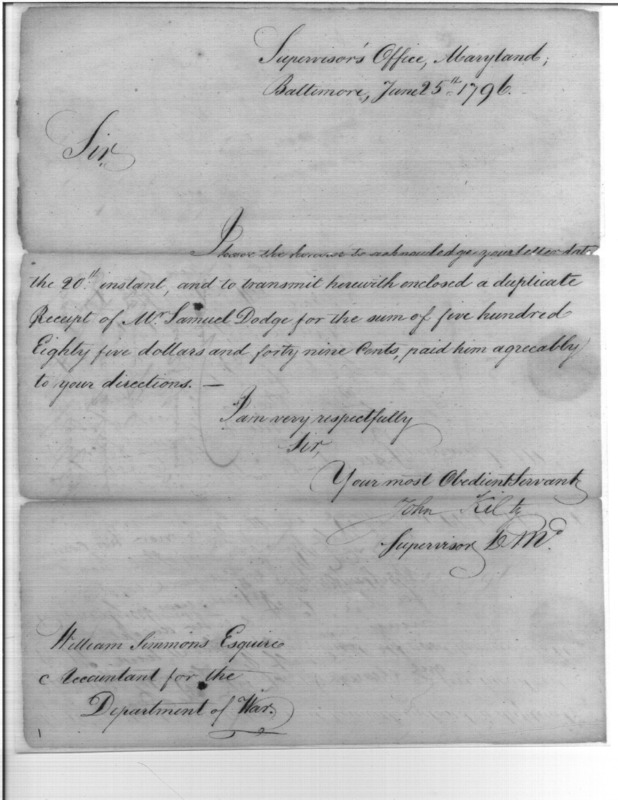 Supervisor's Office, Maryland,
Baltimore, June 25th 1796.
Sir,
I have the honour to acknowledge your letter dat
the 20th instant, and to transmit herewith enclosed a duplicate
Receipt of Mr Samuel Dodge for the sum of five hundred
Eighty five dollars and forty nine Cents, paid him agreeably
to your directions. —
I am very respectfully
Sir,
Your most Obedient Servant
John Kilty
Supervisor D Md.
William Simmons Esquire
Accountant for the
Department of War.